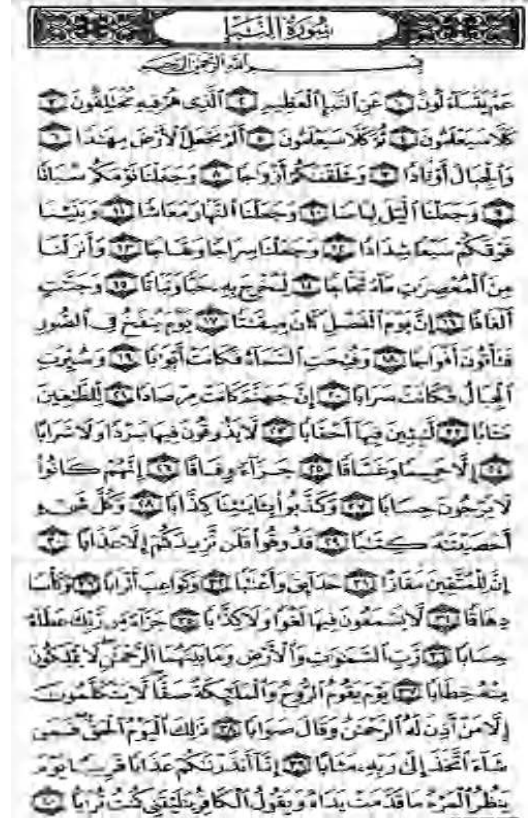 سُورَةُ النَّبَإِ
بِسْمِ اللَّهِ الرَّحْمَٰنِ الرَّحِيمِ
عَمَّ يَتَسَآءَلُونَ ١ عَنِ ٱلنَّبَإِ ٱلْعَظِيمِ ٢ ٱلَّذِى هُمْ فِيهِ مُخْتَلِفُونَ ٣
كَلَّا سَيَعْلَمُونَ ٤ ثُمَّ كَلَّا سَيَعْلَمُونَ ٥ أَلَمْ نَجْعَلِ ٱلْأَرْضَ مِهَٰدًا ٦
وَٱلْجِبَالَ أَوْتَادًا ٧ وَخَلَقْنَٰكُمْ أَزْوَٰجًا ٨ وَجَعَلْنَا نَوْمَكُمْ سُبَاتًا
٩ وَجَعَلْنَا ٱلَّيْلَ لِبَاسًا ١٠ وَجَعَلْنَا ٱلنَّهَارَ مَعَاشًا ١١ وَبَنَيْنَا
فَوْقَكُمْ سَبْعًا شِدَادًا ١٢ وَجَعَلْنَا سِرَاجًا وَهَّاجًا ١٣ وَأَنزَلْنَا
مِنَ ٱلْمُعْصِرَٰتِ مَآءً ثَجَّاجًا ١٤ لِّنُخْرِجَ بِهِۦ حَبًّا وَنَبَاتًا ١٥ وَجَنَّٰتٍ
أَلْفَافًا ١٦ إِنَّ يَوْمَ ٱلْفَصْلِ كَانَ مِيقَٰتًا ١٧ يَوْمَ يُنفَخُ فِى ٱلصُّورِ
فَتَأْتُونَ أَفْوَاجًا ١٨ وَفُتِحَتِ ٱلسَّمَآءُ فَكَانَتْ أَبْوَٰبًا ١٩ وَسُيِّرَتِ
ٱلْجِبَالُ فَكَانَتْ سَرَابًا ٢٠ إِنَّ جَهَنَّمَ كَانَتْ مِرْصَادًا ٢١ لِّلطَّٰغِينَ
مَـَٔابًا ٢٢ لَّٰبِثِينَ فِيهَآ أَحْقَابًا ٢٣ لَّا يَذُوقُونَ فِيهَا بَرْدًا وَلَا شَرَابًا
٢٤ إِلَّا حَمِيمًا وَغَسَّاقًا ٢٥ جَزَآءً وِفَاقًا ٢٦ إِنَّهُمْ كَانُوا۟
لَا يَرْجُونَ حِسَابًا ٢٧ وَكَذَّبُوا۟ بِـَٔايَٰتِنَا كِذَّابًا ٢٨ وَكُلَّ شَىْءٍ
أَحْصَيْنَٰهُ كِتَٰبًا ٢٩ فَذُوقُوا۟ فَلَن نَّزِيدَكُمْ إِلَّا عَذَابًا ٣٠
إِنَّ لِلْمُتَّقِينَ مَفَازًا ٣١ حَدَآئِقَ وَأَعْنَٰبًا ٣٢ وَكَوَاعِبَ أَتْرَابًا ٣٣ وَكَأْسًا
دِهَاقًا ٣٤ لَّا يَسْمَعُونَ فِيهَا لَغْوًا وَلَا كِذَّٰبًا ٣٥ جَزَآءً مِّن رَّبِّكَ عَطَآءً
حِسَابًا ٣٦ رَّبِّ ٱلسَّمَٰوَٰتِ وَٱلْأَرْضِ وَمَا بَيْنَهُمَا ٱلرَّحْمَٰنِ لَا يَمْلِكُونَ
مِنْهُ خِطَابًا ٣٧ يَوْمَ يَقُومُ ٱلرُّوحُ وَٱلْمَلَٰٓئِكَةُ صَفًّا لَّا يَتَكَلَّمُونَ
إِلَّا مَنْ أَذِنَ لَهُ ٱلرَّحْمَٰنُ وَقَالَ صَوَابًا ٣٨ ذَٰلِكَ ٱلْيَوْمُ ٱلْحَقُّ فَمَن
شَآءَ ٱتَّخَذَ إِلَىٰ رَبِّهِۦ مَـَٔابًا ٣٩ إِنَّآ أَنذَرْنَٰكُمْ عَذَابًا قَرِيبًا يَوْمَ
يَنظُرُ ٱلْمَرْءُ مَا قَدَّمَتْ يَدَاهُ وَيَقُولُ ٱلْكَافِرُ يَٰلَيْتَنِى كُنتُ تُرَٰبًا ٤٠